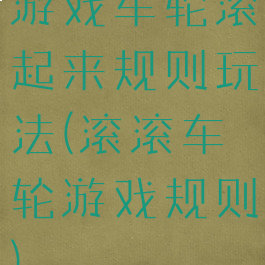 游戏车轮滚
起来规则玩
法(滚滚车
轮游戏规则
)